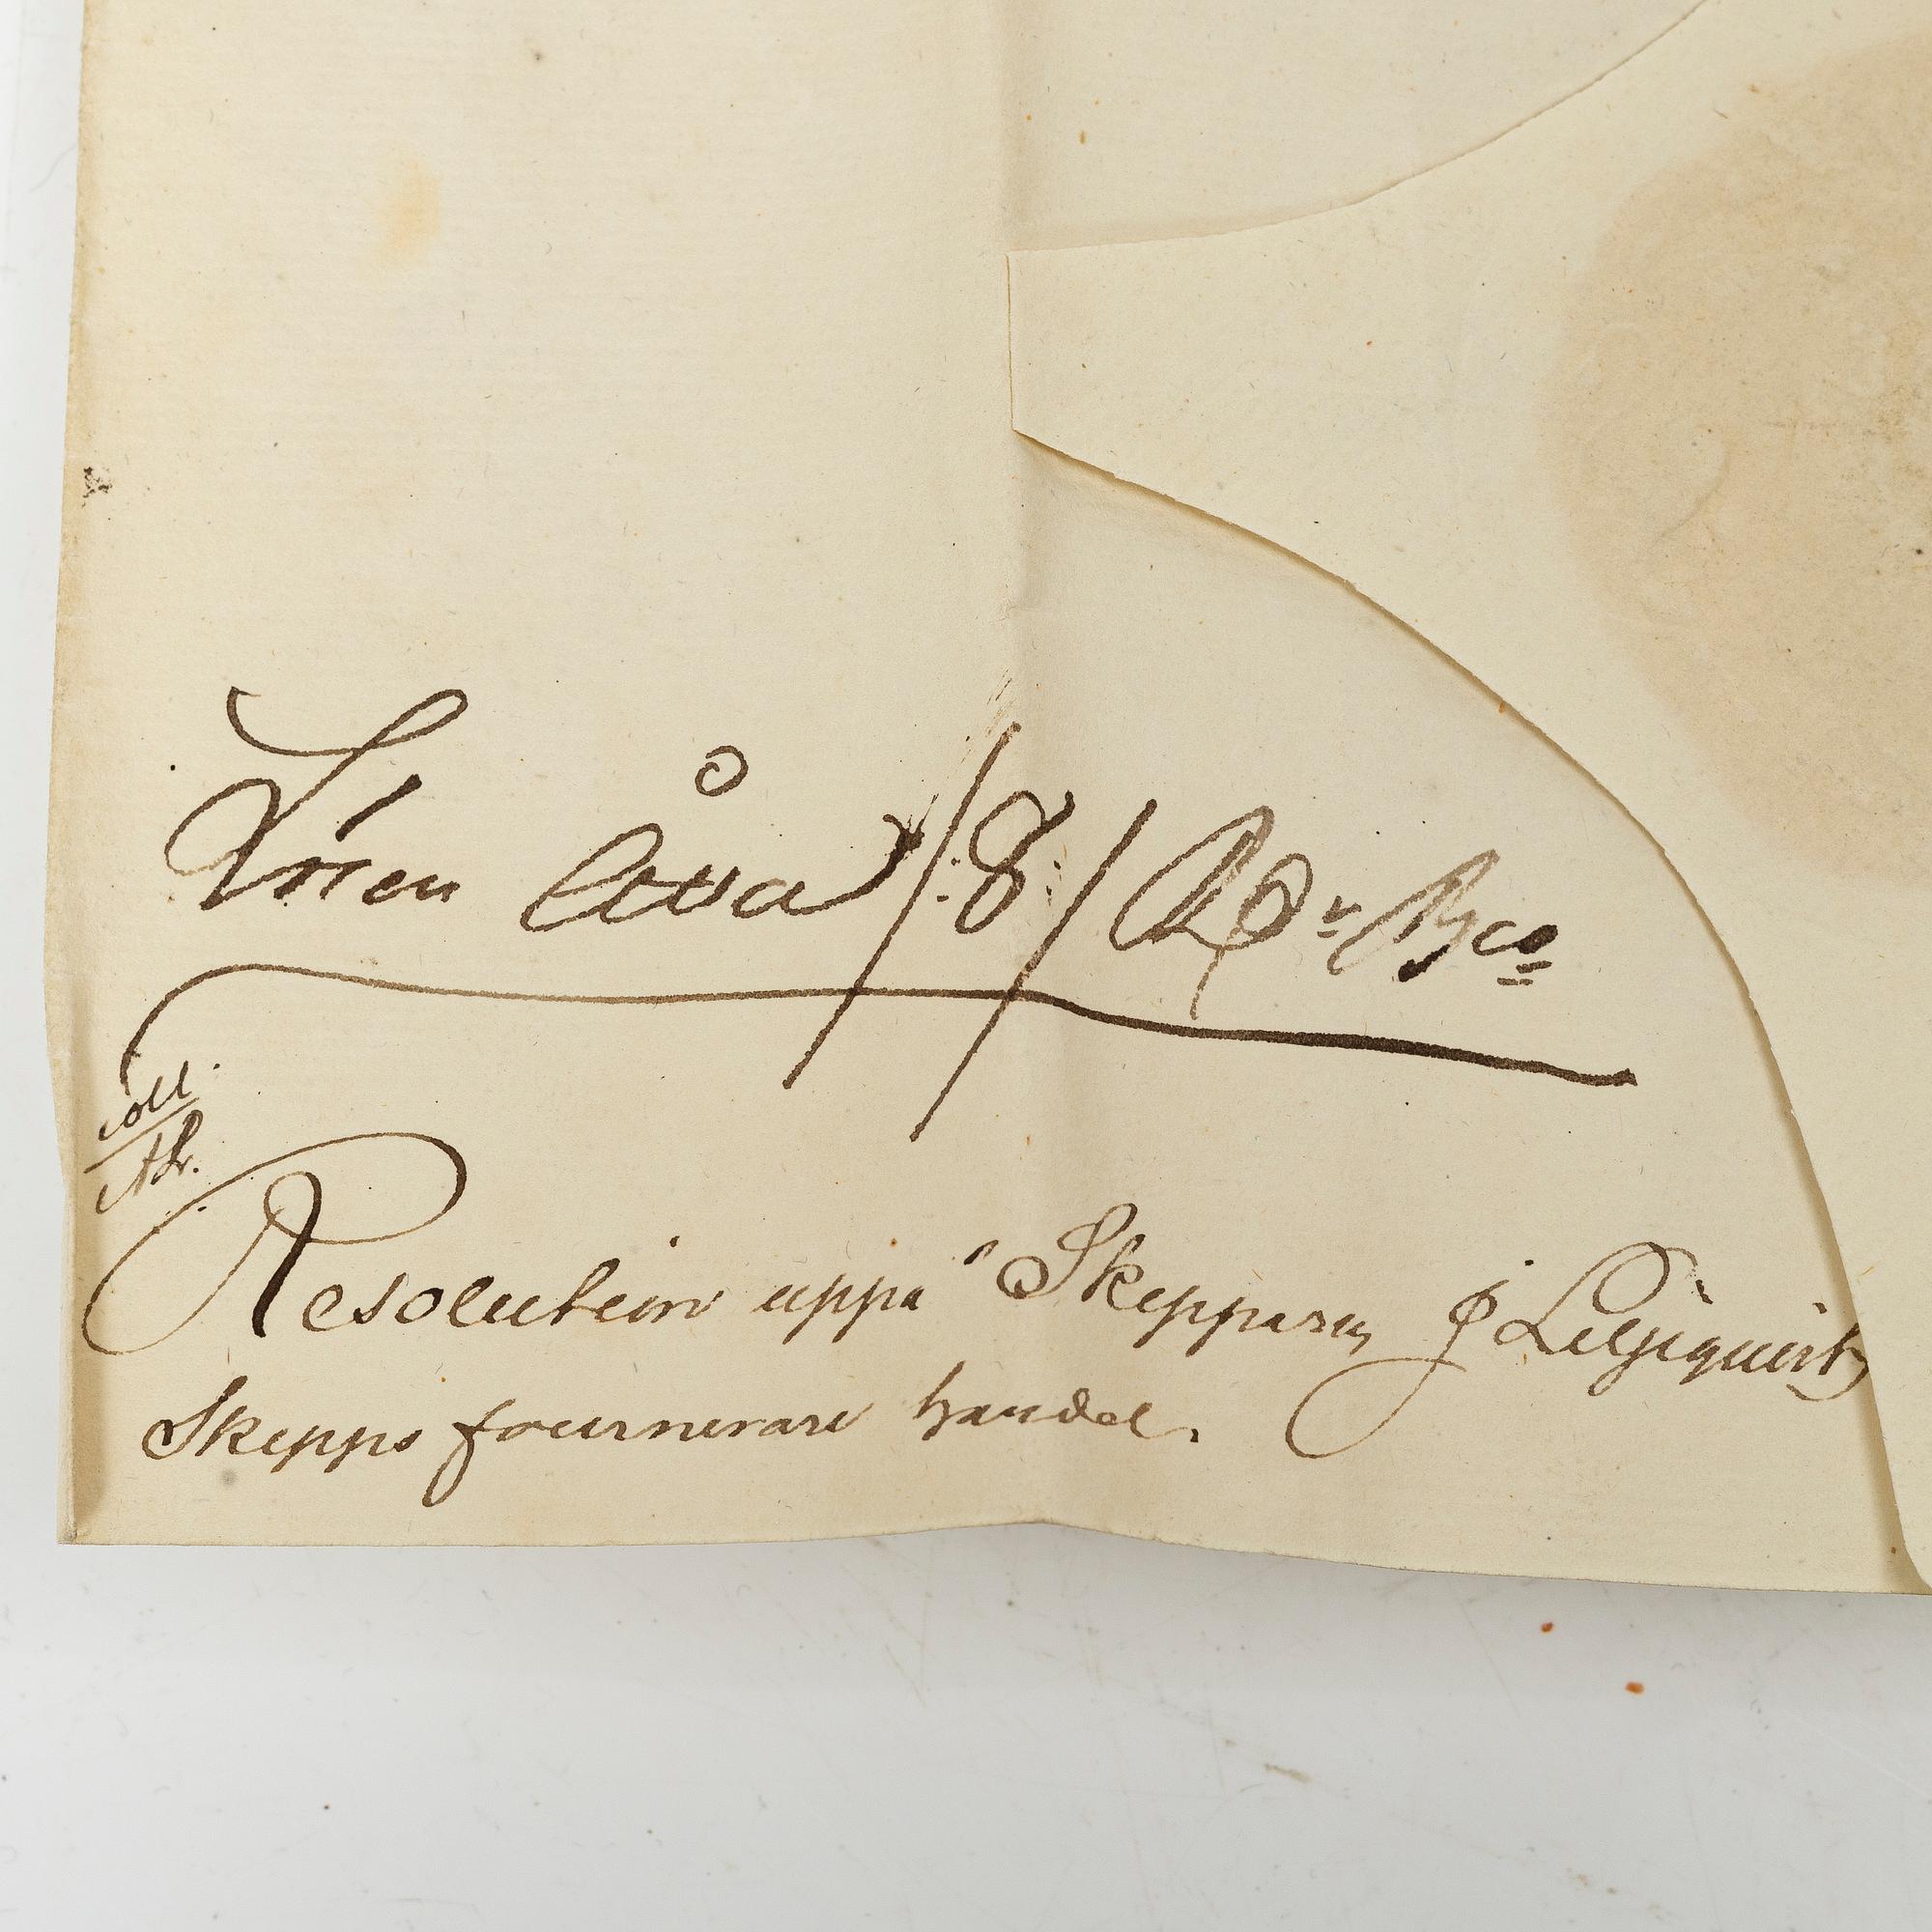 Lösen åtta /:8:/ RDr Bco
coll.
Resolution uppå Skepparen J Liljequist
Skepps fournerare handel.